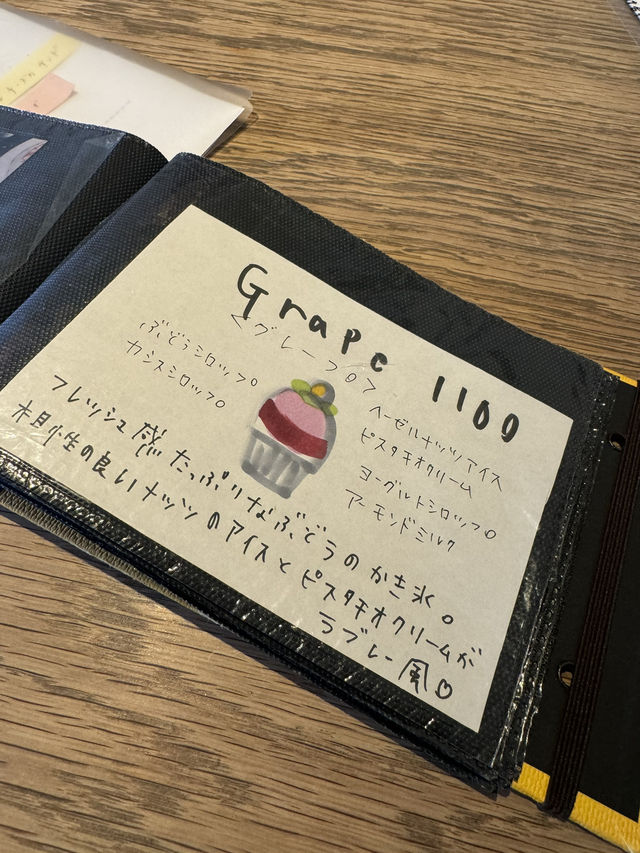 Grape 1100
<グレープ>
ぶどうシロップ
カシスシロップ
ヘーゼルナッツアイス
ピスタチオクリーム
ヨーグルトシロップ
アーモンドミルク
フレッシュ感たっぷりなぶどうのかき氷。
相性の良いナッツのアイスとピスタチオクリームが
ラブレー風♡